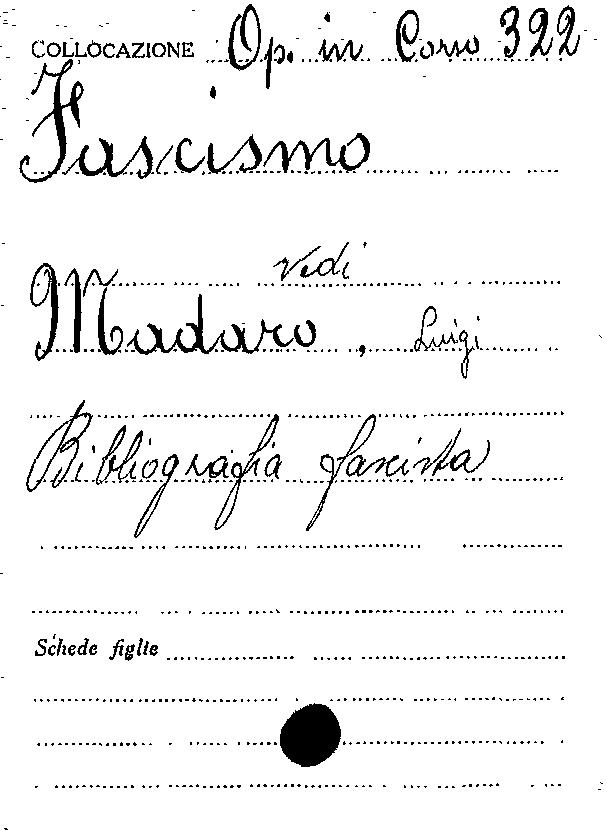 COLLOCAZIONE Op. in Corso 322
Fascismo
vedi
Madaro, Luigi
Bibliografia fascista
Schede figlie